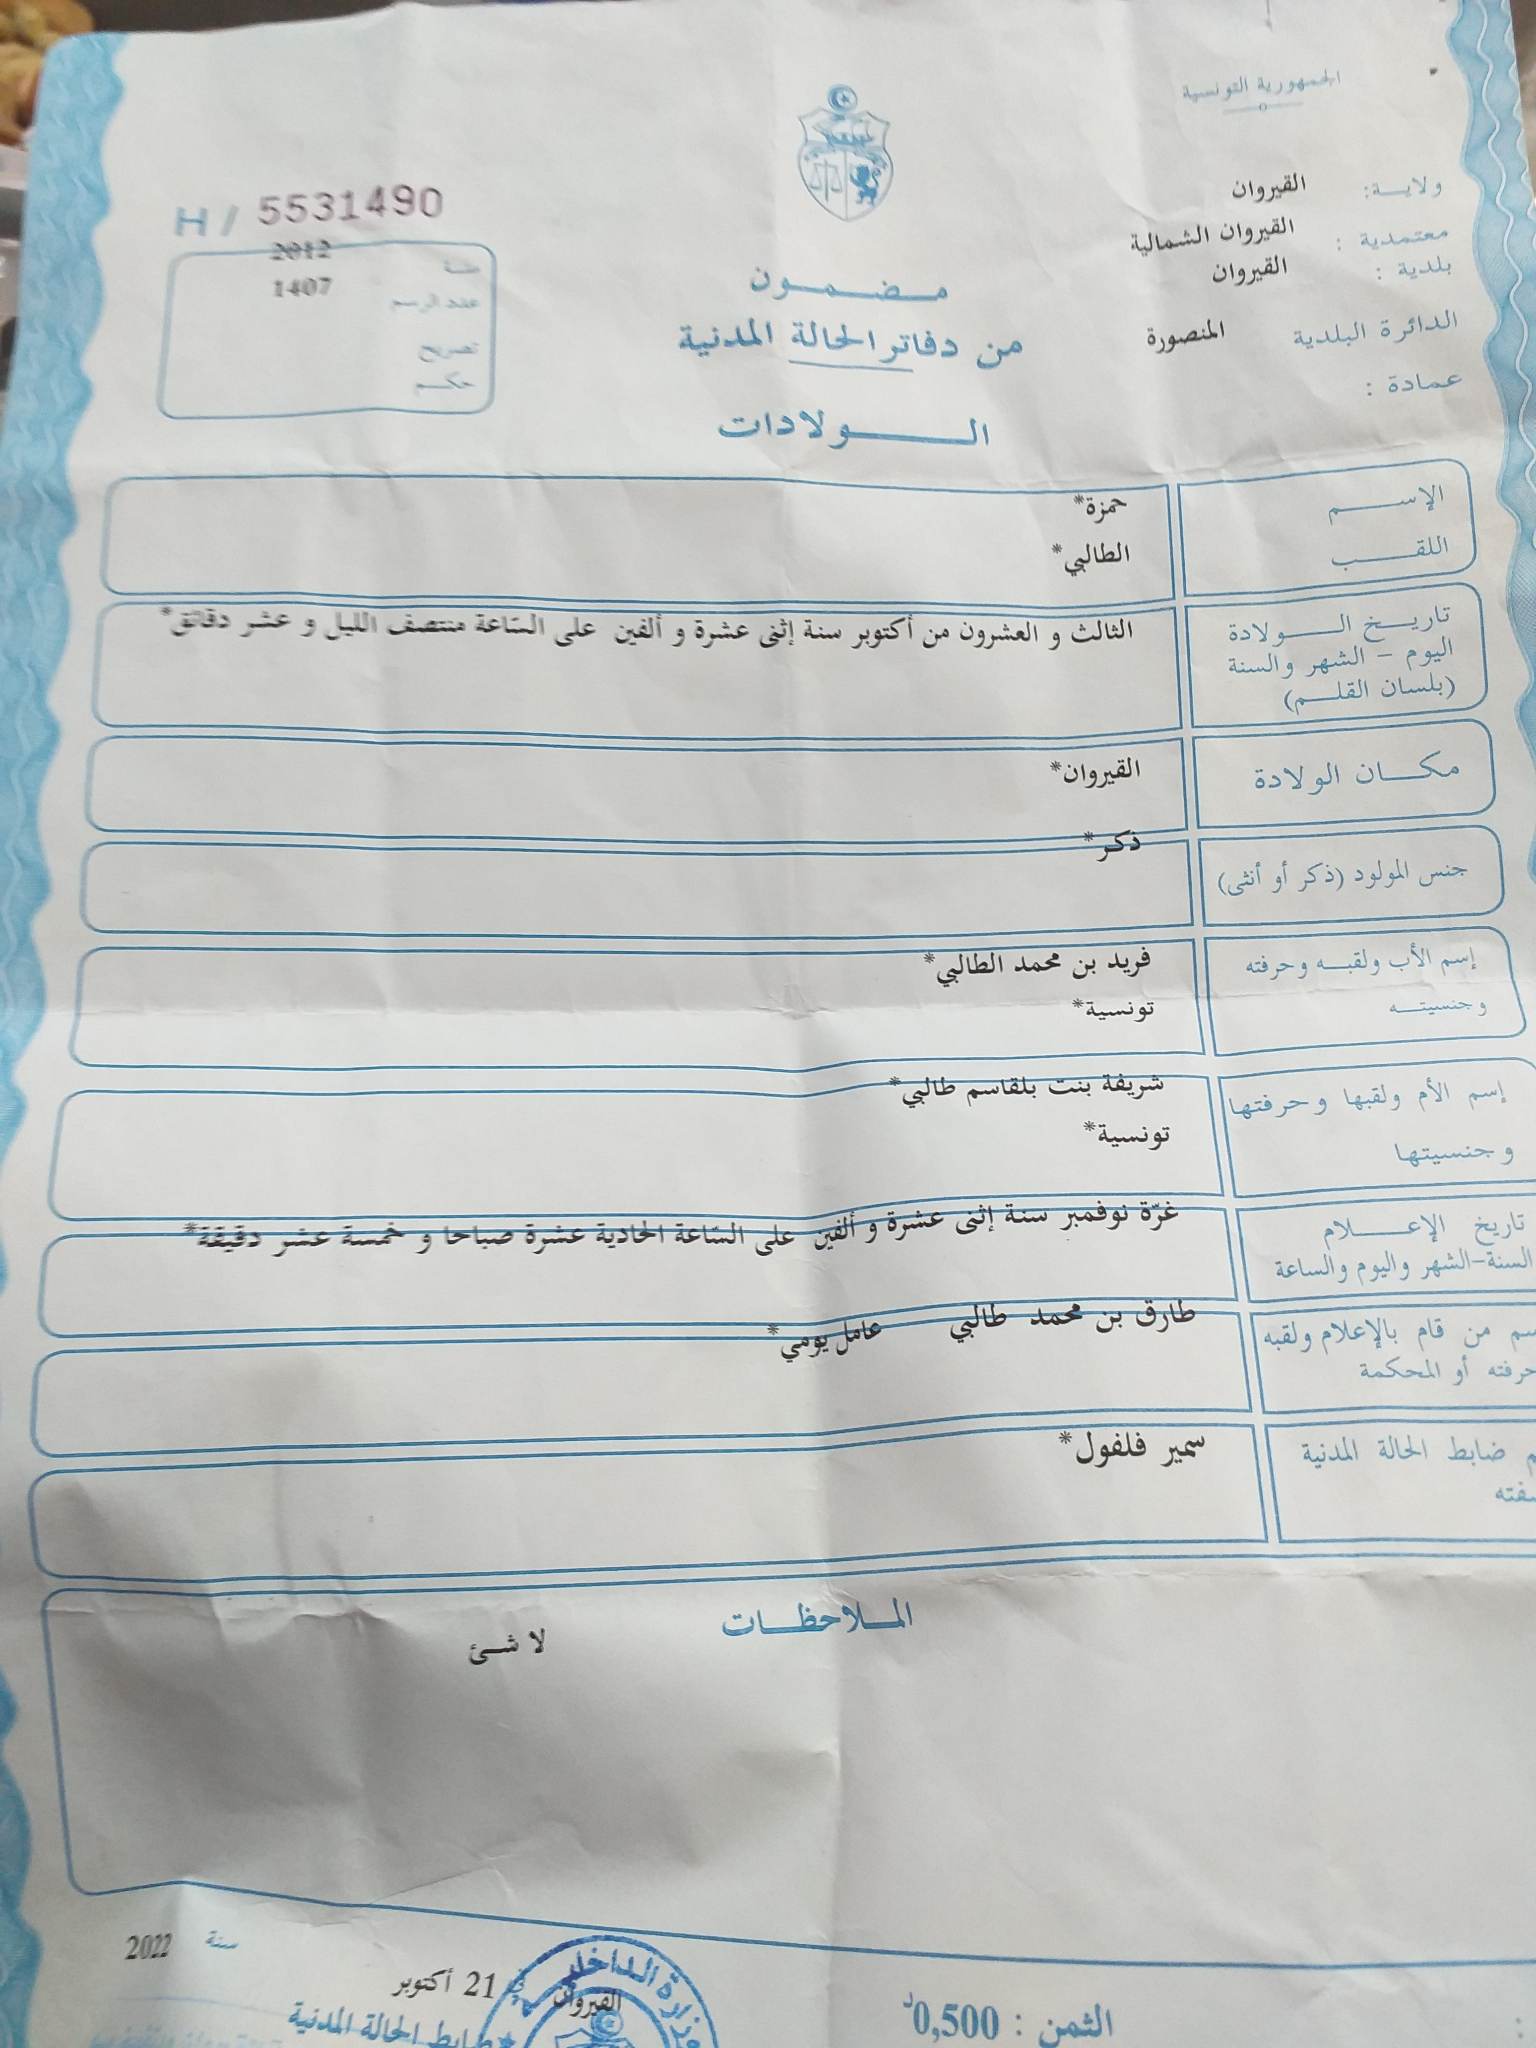 الجمهورية التونسية
ولاية: القيروان
معتمدية : القيروان الشمالية
بلدية : القيروان
الدائرة البلدية المنصورة
عمادة :
H / 5531490
سنة 2012
عدد الرسم 1407
تصريح
حكم
مضمون
من دفاتر الحالة المدنية
الولادات
الإسم حمزة*
اللقب الطالبي*
تاريخ الولادة الثالث و العشرون من أكتوبر سنة إثنى عشرة و ألفين على السّاعة منتصف الليل و عشر دقائق*
اليوم - الشهر والسنة
(بلسان القلم)
مكان الولادة القيروان*
جنس المولود (ذكر أو أنثى) ذكر*
إسم الأب ولقبه وحرفته فريد بن محمد الطالبي*
وجنسيته تونسية*
إسم الأم ولقبها وحرفتها شريفة بنت بلقاسم طالبي*
وجنسيتها تونسية*
تاريخ الإعلام غرّة نوفمبر سنة إثنى عشرة و ألفين على السّاعة الحادية عشرة صباحا و خمسة عشر دقيقة*
السنة-الشهر واليوم والساعة
من قام بالإعلام ولقبه طارق بن محمد طالبي عامل يومي*
أو المحكمة
ضابط الحالة المدنية سمير فلفول*
الملاحظات
لا شئ
سنة 2022
القيروان في 21 أكتوبر
وزارة الداخلية
ضابط الحالة المدنية
الثمن : 0,500د